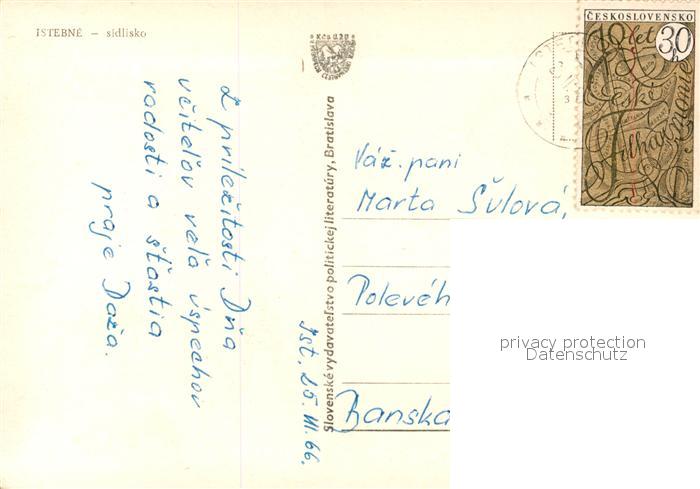 ISTEBNÉ – sídlisko
Z príležitosti Dňa
učiteľov veľa úspechov
radosti a šťastia
praje Daža.
Ist. 25. III. 66.
Slovenské vydavateľstvo politickej literatúry, Bratislava
ČESKOSLOVENSKO
30 h
70 let
České
Filharmonie
Váž. pani
Marta Šulová,
Polevéh
Banska
privacy protection
Datenschutz